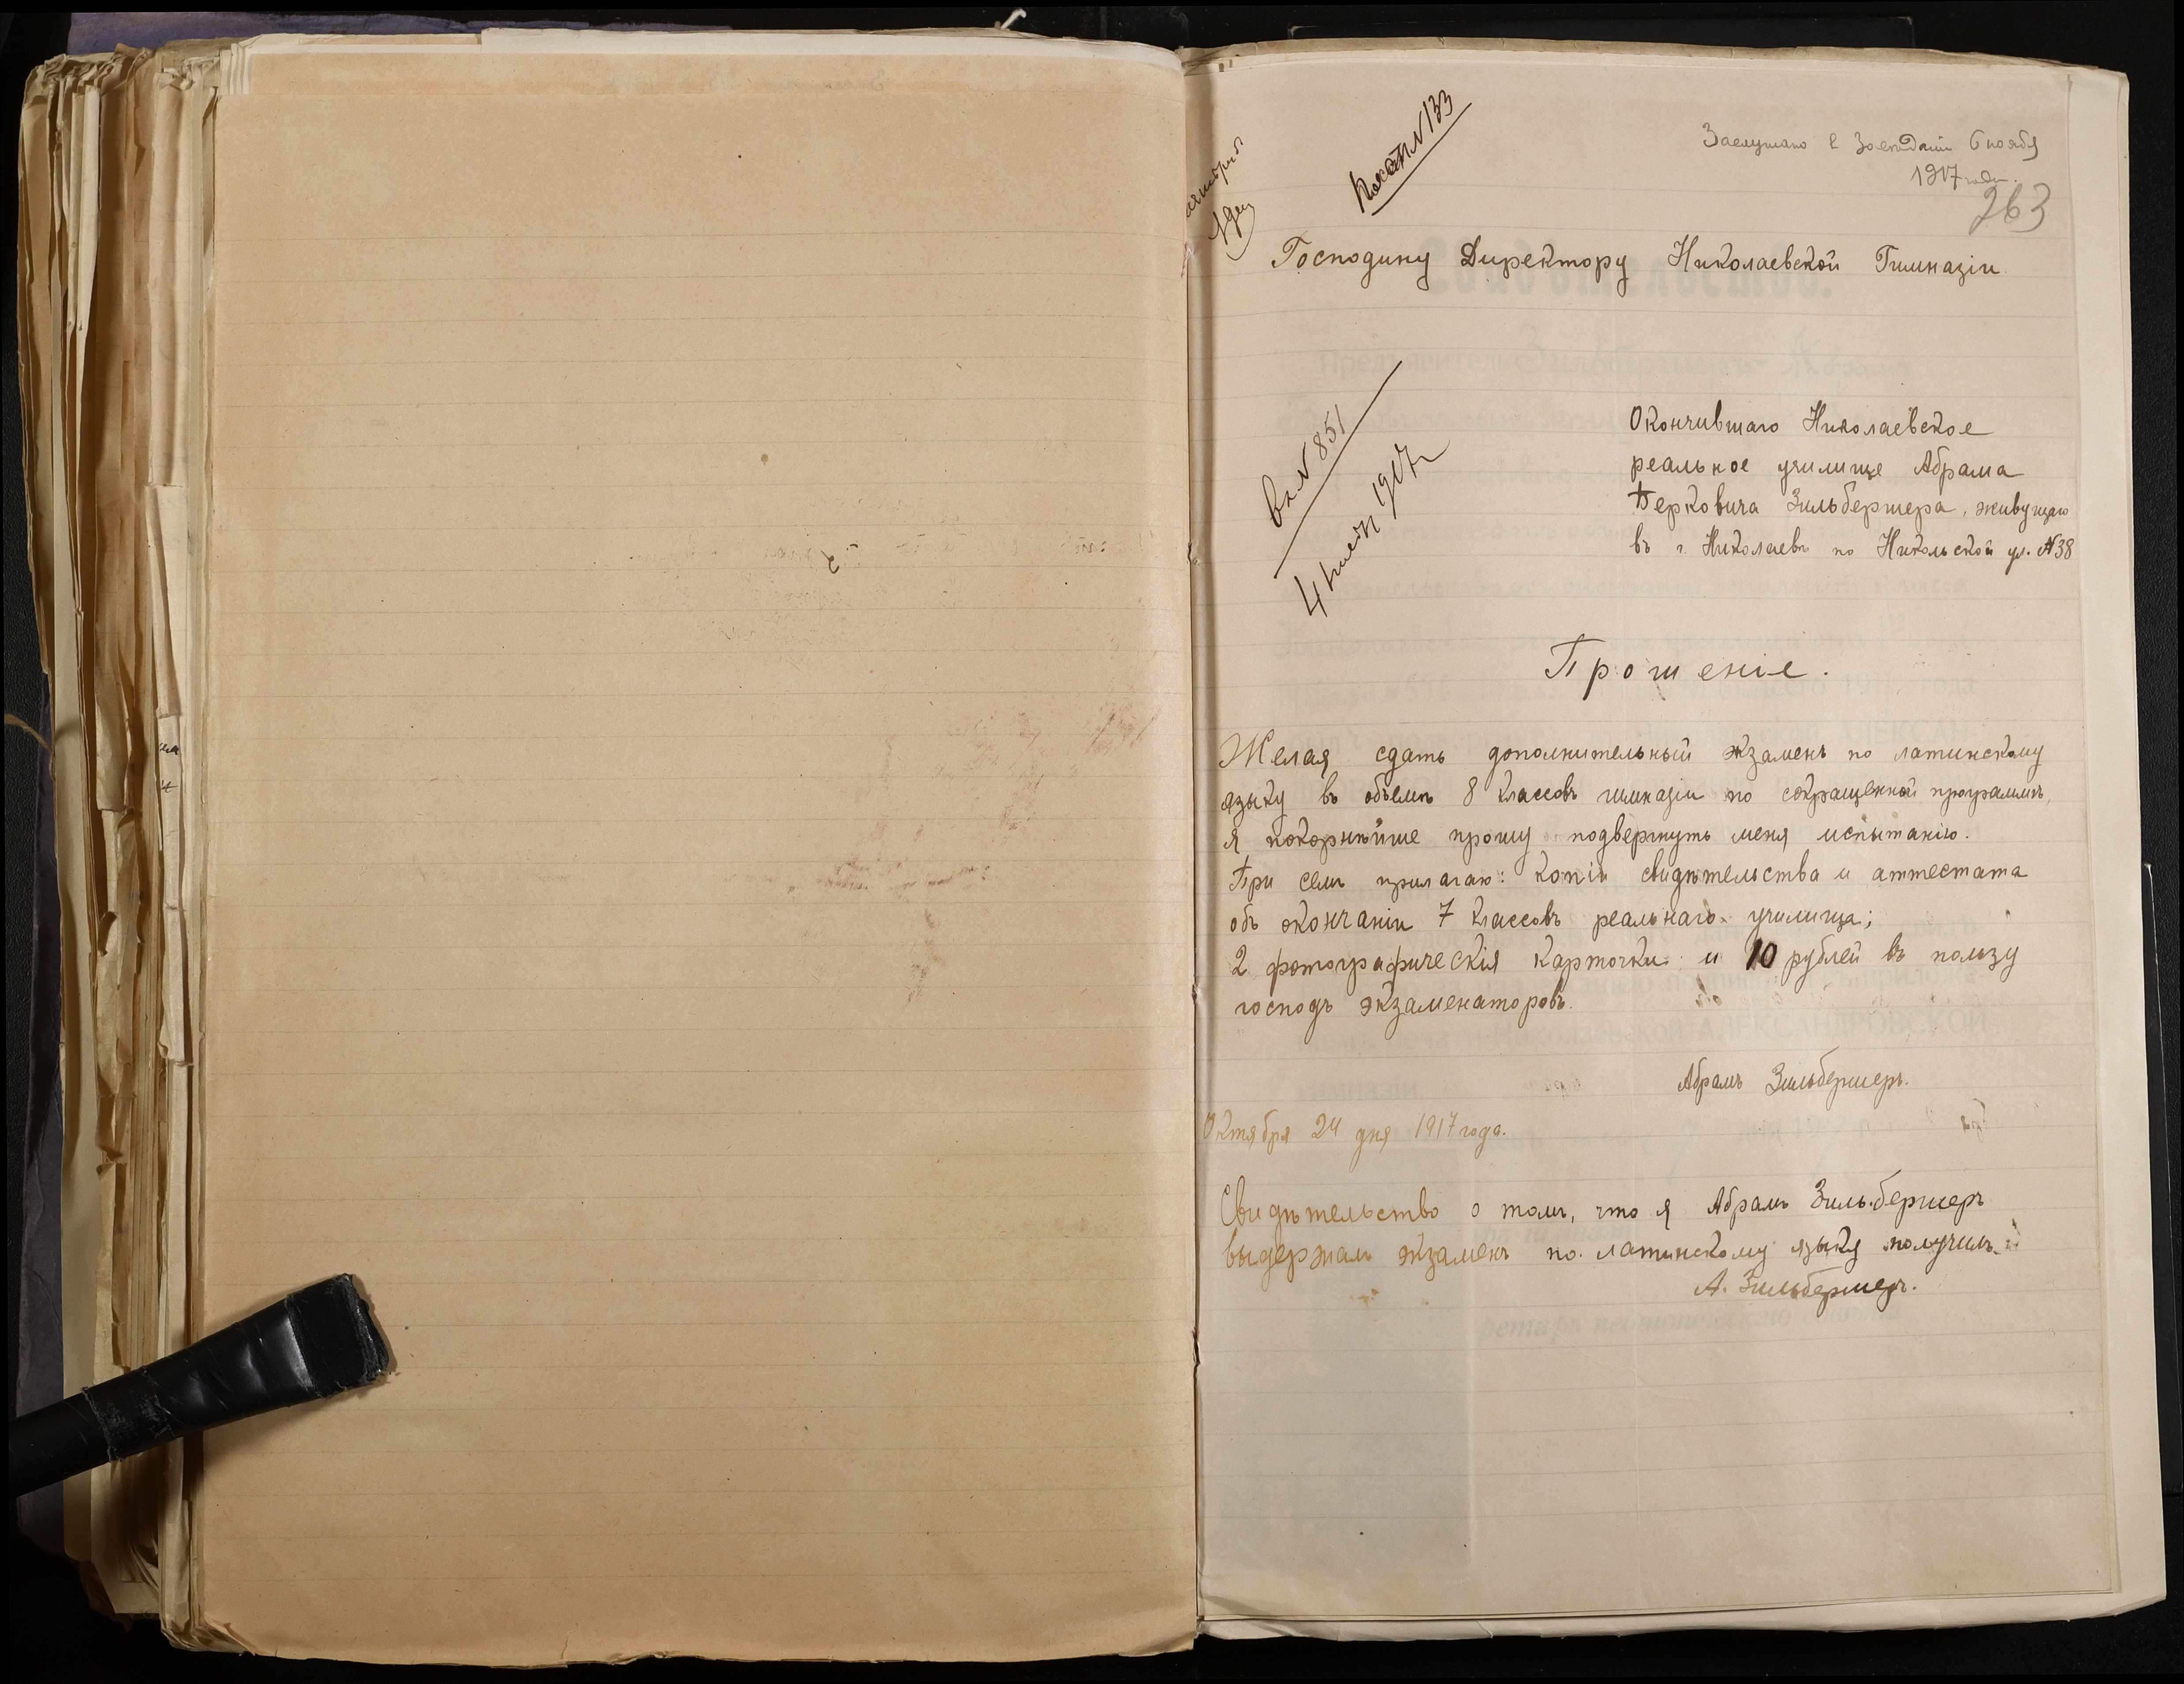 Заслушано в Заседаніи 6 ноября
1917 года.
263
№ 133
Господину Директору Николаевской Гимназіи
вх № 851
1917
Окончившаго Николаевское
реальное училище Абрама
Берковича Зильбершера, живущаго
въ г. Николаевѣ по Никольской ул. №38
Прошеніе.
Желая сдать дополнительный экзаменъ по латинскому
языку въ объемѣ 8 классовъ гимназіи по сокращенной программѣ,
я покорнѣйше прошу подвергнуть меня испытанію.
При семъ прилагаю: копіи свидѣтельства и аттестата
объ окончаніи 7 классовъ реальнаго училища;
2 фотографическія карточки и 10 рублей въ пользу
господъ экзаменаторовъ.
Абрамъ Зильбершеръ.
Октября 24 дня 1917 года.
Свидѣтельство о томъ, что я Абрамъ Зильбершеръ
выдержалъ экзаменъ по латинскому языку получилъ.
А. Зильбершеръ.